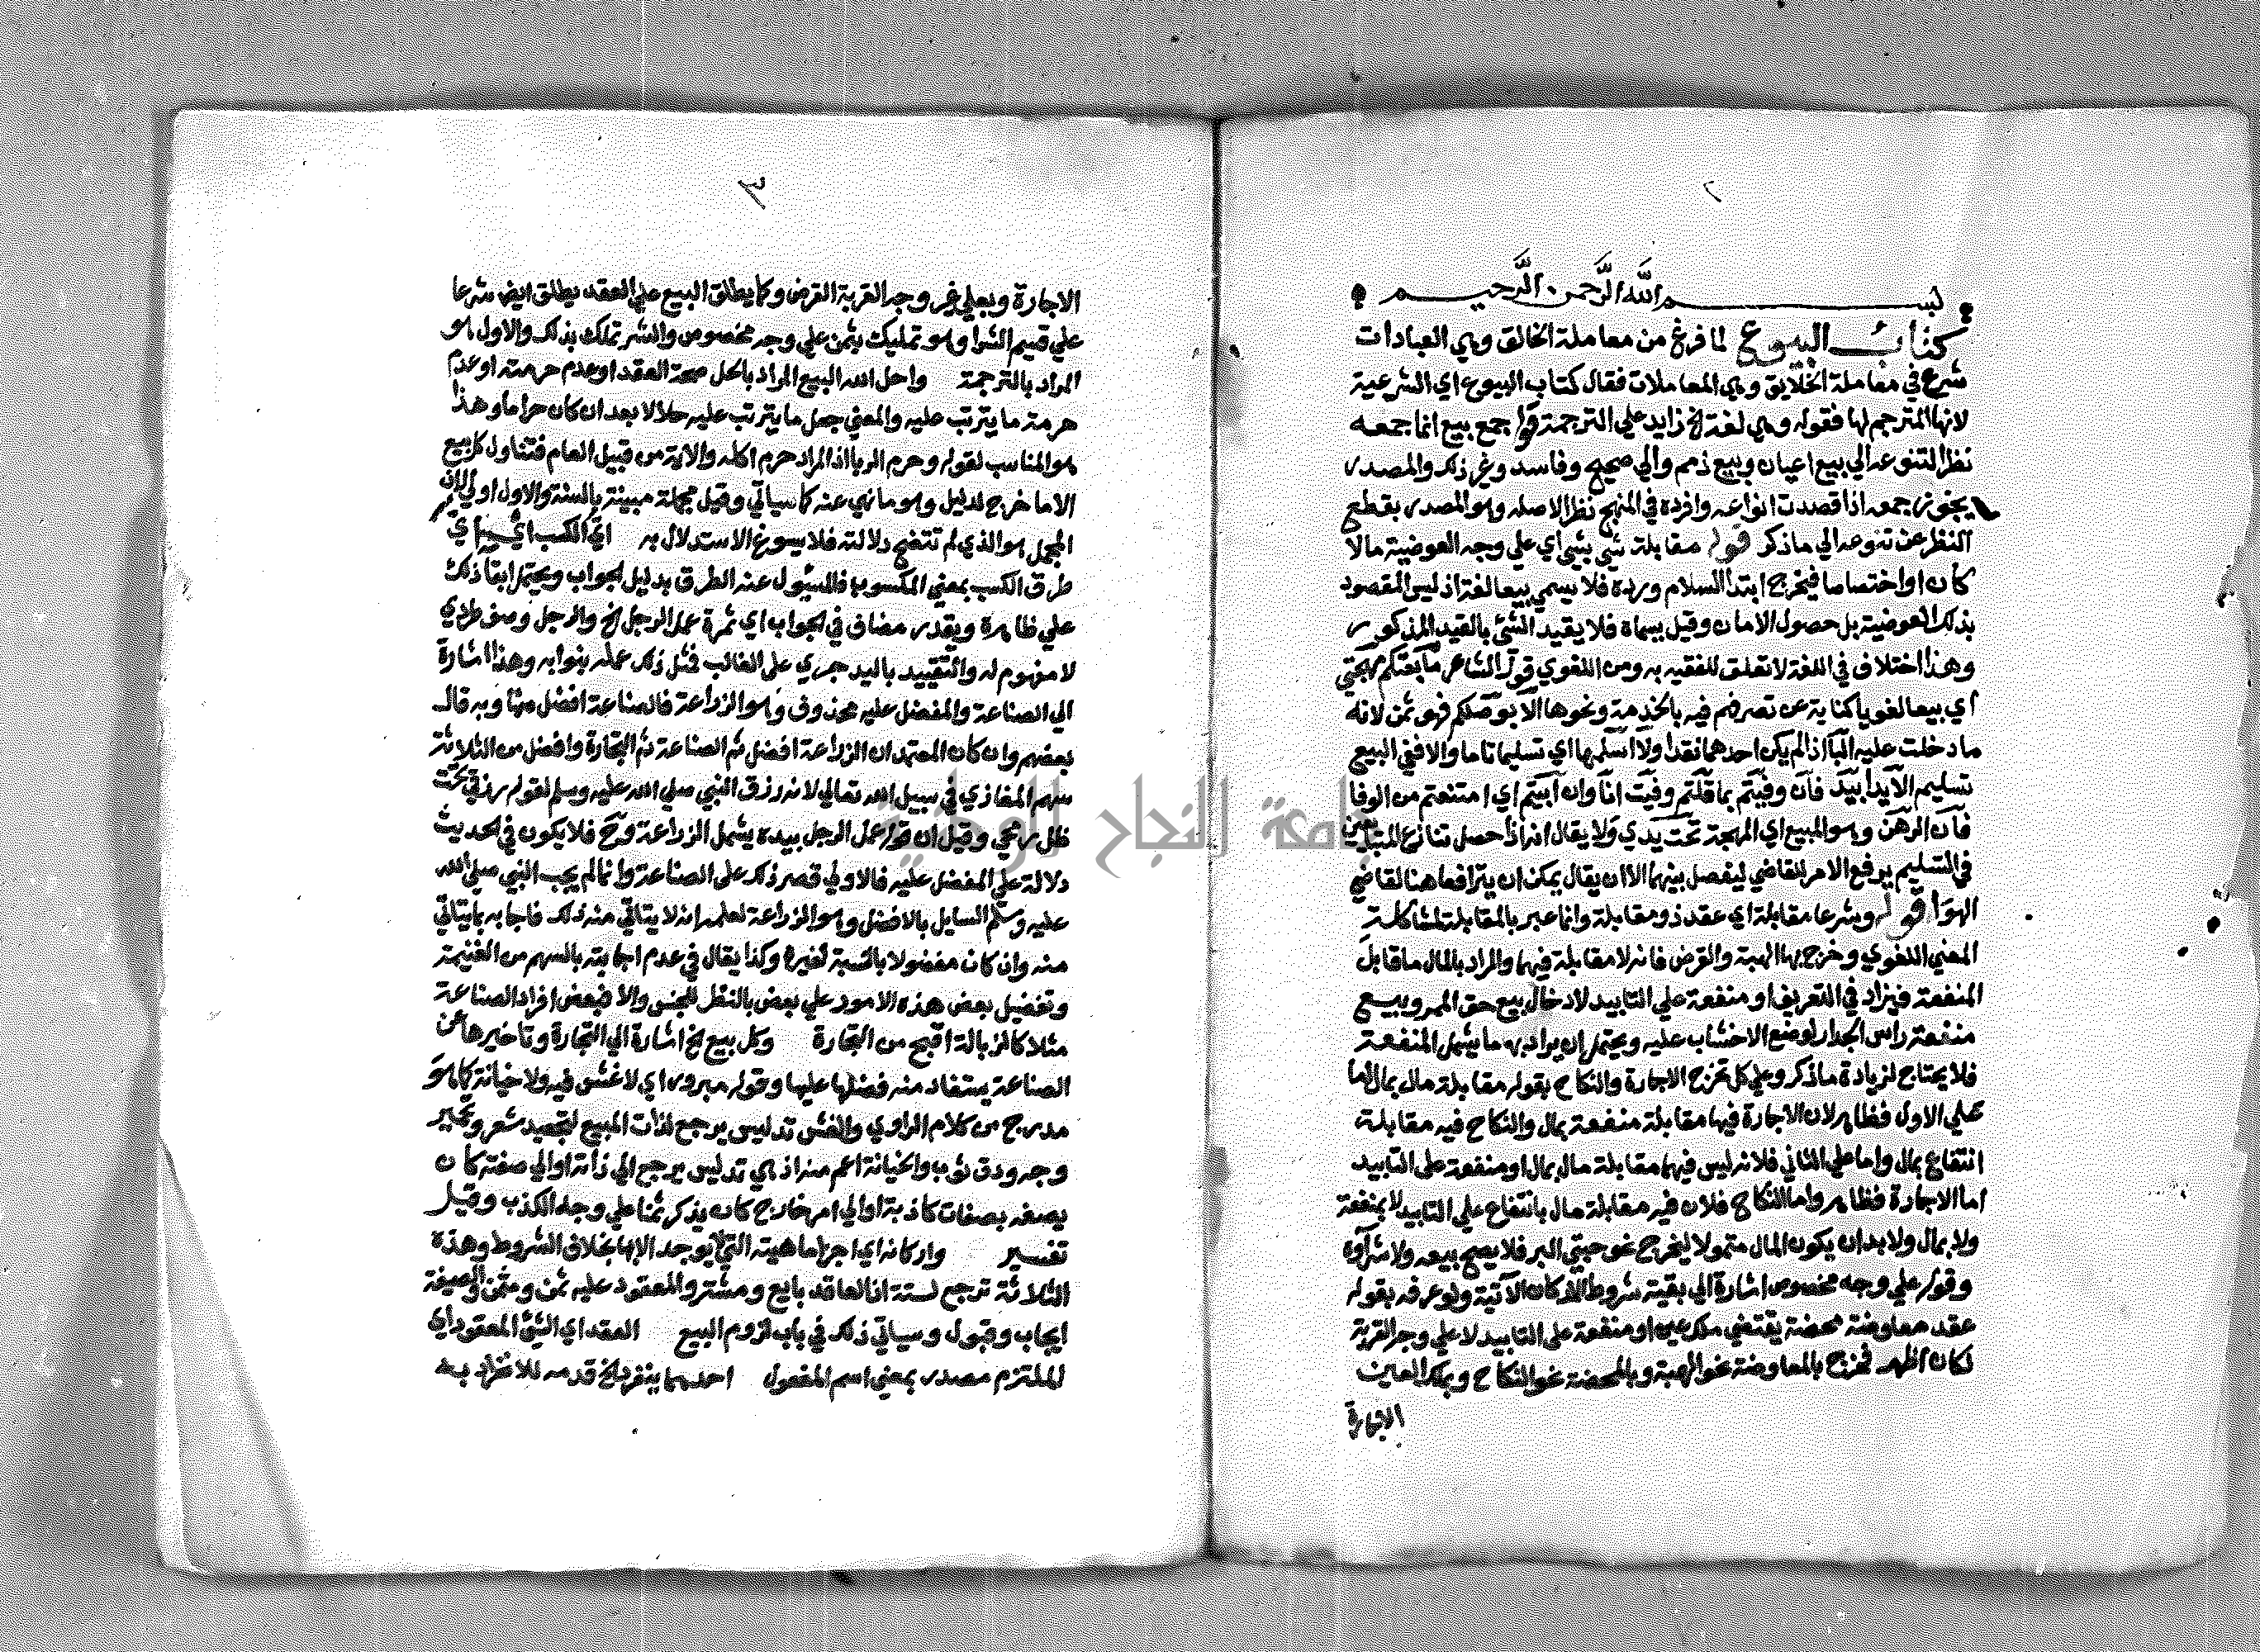 ٢
بسم الله الرحمن الرحيم
كتاب البيوع لما فرغ من معاملة الخالق وهي العبادات
شرع في معاملة الخلايق وهي المعاملات فقال كتاب البيوع اي الشرعية
لانها المترجم لها فقوله وهي لغة الخ زايد علي الترجمة قوله جمع بيع انما جمعه
نظرا لتنوعه الي بيع اعيان وبيع ذمم والي صحيح وفاسد وغير ذلك والمصدر
يجوز جمعه اذا قصدت انواعه وافرده في المنهج نظرا لاصله وهو المصدر بقطع
النظر عن تنوعه الي ما ذكر قوله مقابلة شي بشي اي علي وجه العوضية مالا
كان او اختصاصا فيخرج ابتدا السلام ورده فلا يسمي بيعا لغة اذ ليس المقصود
بذلك العوضية بل حصول الامان وقيل يسماه فلا يقيد الشئ بالقيد المذكور
وهذا اختلاف في اللغة لا تعلق للفقيه به ومن اللغوي قول الشاعر ما بعتكم مهجتي
اي بيعا لغويا كناية عن تصرفهم فيه بالخدمة ونحوها الا بوصلكم فهو ثمن لانه
ما دخلت عليه البا اذ لم يكن احدهما نقدا ولا اسلمها اي تسليما تاما والا ففي البيع
تسليم الا يدا بيد فان وفيتم بما قلتم وفيت انا وان ابيتم اي امتنعتم من الوفا
فان الرهن وهو المبيع اي المهجة تحت يدي ولا يقال انه اذا حصل تنازع المتبايعين
في التسليم يرفع الامر للقاضي ليفصل بينهما الا ان يقال يمكن ان يترافعا هنا لقاضي
الهوا قوله وشرعا مقابلة اي عقد ذو مقابلة وانما عبر بالمقابلة لمشاكلة
المعني اللغوي وخرج بها الهبة والقرض فانه لا مقابلة فيهما والمراد بالمال ما قابل
المنفعة فيزاد في التعريف او منفعة علي التابيد لادخال بيع حق الممر وبيع
منفعة راس الجدار لوضع الاخشاب عليه ويحتمل ان يراد به ما يشمل المنفعة
فلا يحتاج لزيادة ما ذكر وعلي كل تخرج الاجارة والنكاح بقوله مقابلة مال بمال اما
علي الاول فظاهر لان الاجارة فيها مقابلة منفعة بمال والنكاح فيه مقابلة
انتفاع بمال واما علي الثاني فلانه ليس فيهما مقابلة مال بمال او منفعة علي التابيد
اما الاجارة فظاهر واما النكاح فلان فيه مقابلة مال بانتفاع علي التابيد لا بمنفعة
ولا بمال ولابد ان يكون المال متمولا ليخرج نحو حبتي البر فلا يصح بيعه ولا شراوه
وقوله علي وجه مخصوص اشارة الي بقية شروط الاركان الاتية ولو عرفه بقوله
عقد معاوضة محضة يقتضي ملك عين او منفعة علي التابيد لا علي وجه القربة
لكان اظهر فخرج بالمعاوضة نحو الهبة وبالمحضة نحو النكاح وبملك العين
الاجارة
٣
الاجارة وبعلي غير وجه القربة القرض وكما يطلق البيع علي العقد يطلق ايضا شرعا
علي قسيم الشرا وهو تمليك بثمن علي وجه مخصوص والشر تملك بذلك والاول هو
المراد بالترجمة واحل الله البيع المراد بالحل صحة العقد او عدم حرمته او عدم
حرمة ما يترتب عليه والمعني جعل ما يترتب عليه حلالا بعد ان كان حراما وهذا
هو المناسب لقوله وحرم الربا اذ المراد حرم اكله والاية من قبيل العام فتناول كل بيع
الا ما خرج لدليل وهو ما نهي عنه كما سياتي وقيل مجملة مبينة بالسنة والاول اولي لان
المجمل هو الذي لم تتضح دلالته فلا يسوغ الاستدلال به اي الكسب اي من اي
طرق الكسب بمعني المكسوب فالمسؤل عنه الطرق بدليل الجواب ويحتمل ابقا ذلك
علي ظاهره ويقدر مضاف في الجواب اي ثمرة عمل الرجل الخ والرجل وصف طردي
لا مفهوم له والتقييد باليد جري علي الغالب فمثل ذلك عمله بنوابه وهذا اشارة
الي الصناعة والمفضل عليه محذوف وهو الزراعة فالصناعة افضل منها وبه قال
بعضهم وان كان المعتمد ان الزراعة افضل ثم الصناعة ثم التجارة وافضل من الثلاثة
سهم المغازي في سبيل الله تعالي لانه رزق النبي صلي الله عليه وسلم لقوله رزقي تحت
ظل رمحي وقيل ان قوله عمل الرجل بيده يشمل الزراعة وح فلا يكون في الحديث
دلالة علي المفضل عليه فالاولي قصر ذلك علي الصناعة وانما لم يجب النبي صلي الله
عليه وسلم السايل بالافضل وهو الزراعة لعلمه انه لا يتاتي منه ذلك فاجابه بما يتاتي
منه وان كان مفضولا بالنسبة لغيره وكذا يقال في عدم اجابته بالسهم من الغنيمة
وتفضيل بعض هذه الامور علي بعض بالنظر للجنس والا فبعض افراد الصناعة
مثلا كالزبالة اقبح من التجارة وكل بيع الخ اشارة الي التجارة وتاخيرها عن
الصناعة يستفاد منه فضلها عليها وقوله مبرور اي لا غش فيه ولا خيانة كما هو
مدرج من كلام الراوي والغش تدليس يرجع لذات المبيع لتجعيد شعر وتحمير
وجه ودق ثوب والخيانة اعم منه اذ هي تدليس يرجع الي ذاته او الي صفته كان
يصفه بصفات كاذبة او الي امر خارج كان يذكر ثمنا علي وجه الكذب وقيل
تفسير واركانه اي اجزا ماهيته التي لا يوجد الا بها بخلاف الشروط وهذه
الثلاثة ترجع لستة اذ العاقد بايع ومشتر والمعقود عليه ثمن ومثمن والصيغة
ايجاب وقبول وسياتي ذلك في باب لزوم البيع العقد اي الشئ المعقود اي
الملتزم مصدر بمعني اسم المفعول احدهما ينفرد الخ قدمه للانفراد به
جامعة النجاح الوطنية